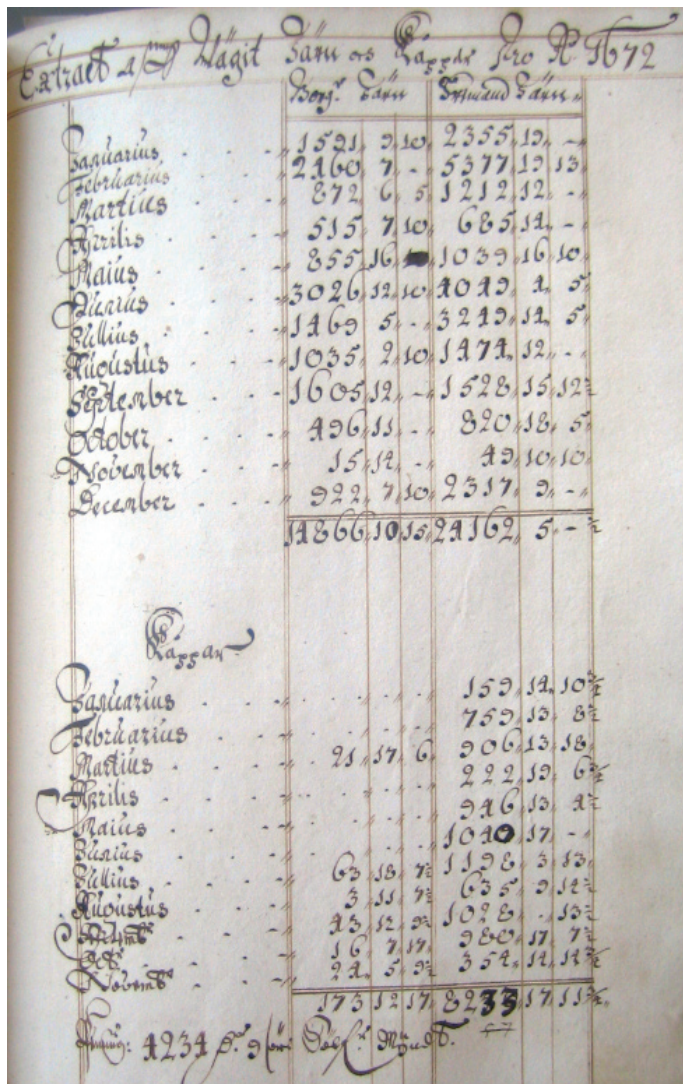 Extract aff Wägit Järn och Kappar Pro A° 1672
Borg. Järn Frimand Järn
Januarius 1591 9 10 2355 19 -
Februarius 2460 7 - 5377 19 13
Martius 872 6 5 1212 12 -
Aprilis 515 7 10 685 14 -
Maius 855 16 1039 16 10
Junius 3026 12 10 4049 4 5
Jullius 1469 5 - 3249 14 5
Augustus 1035 2 10 1474 12 -
September 1605 12 - 1528 15 12½
October 496 11 - 820 18 5
November 15 14 - 49 10 10
December 922 7 10 2317 9 -
14866 10 15 24162 5 - ½
Kappar
Januarius 159 14 10¾
Februarius 759 13 8½
Martius 21 17 6 906 13 18
Aprilis 222 19 6½
Maius 946 13 4½
Junius 1040 17 -
Jullius 63 18 7½ 1198 3 13
Augustus 3 11 7½ 635 9 14½
Septemb 43 12 9½ 1028 - 13½
Oct 16 7 17 980 17 7½
Novemb 24 5 9½ 354 14 14¾
173 12 17 8233 17 11¾
4234 D. 9 öre Sölf. Mÿndt.